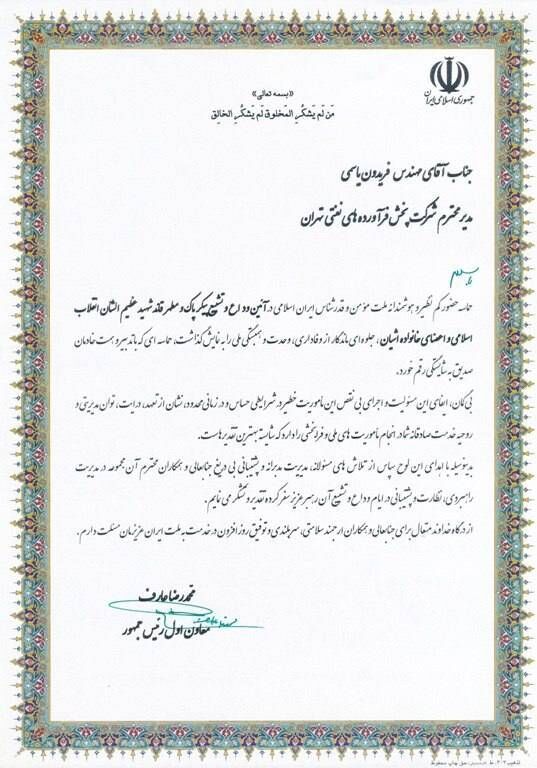 جمهوری اسلامی ایران
«بسمه تعالی»
مَن لَم یَشکُرِ المَخلوق لَم یَشکُرِ الخالِق
جناب آقای مهندس فریدون یاسمی
مدیر محترم شرکت پخش فرآورده های نفتی تهران
با سلام
حماسه حضور کم نظیر و هوشمندانه ملت مؤمن و قدرشناس ایران اسلامی در آئین وداع و تشییع پیکر پاک و مطهر قائد شهید عظیم الشان انقلاب
اسلامی و اعضای خانواده ایشان، جلوه ای ماندگار از وفاداری، وحدت و همبستگی ملی را به نمایش گذاشت، حماسه ای که با تدبیر و همت خادمان
صدیق به شایستگی رقم خورد.
بی گمان، ایفای این مسئولیت و اجرای بی نقص این مأموریت خطیر در شرایطی حساس و در زمانی محدود، نشان از تعهد، درایت، توان مدیریتی و
روحیه خدمت صادقانه شما در انجام مأموریت های ملی و فرابخشی را دارد که شایسته بهترین تقدیرهاست.
بدینوسیله با اهدای این لوح سپاس از تلاش های مسئولانه، مدیریت مدبرانه و پشتیبانی بی دریغ جنابعالی و همکاران محترم آن مجموعه در مدیریت
راهبردی، نظارت و پشتیبانی در ایام وداع و تشییع آن رهبر عزیز سفر کرده تقدیر و تشکر می نمایم.
از درگاه خداوند متعال برای جنابعالی و همکاران ارجمند سلامتی، سربلندی و توفیق روز افزون در خدمت به ملت ایران عزیزمان مسئلت دارم.
محمد رضا عارف
معاون اول رئیس جمهور